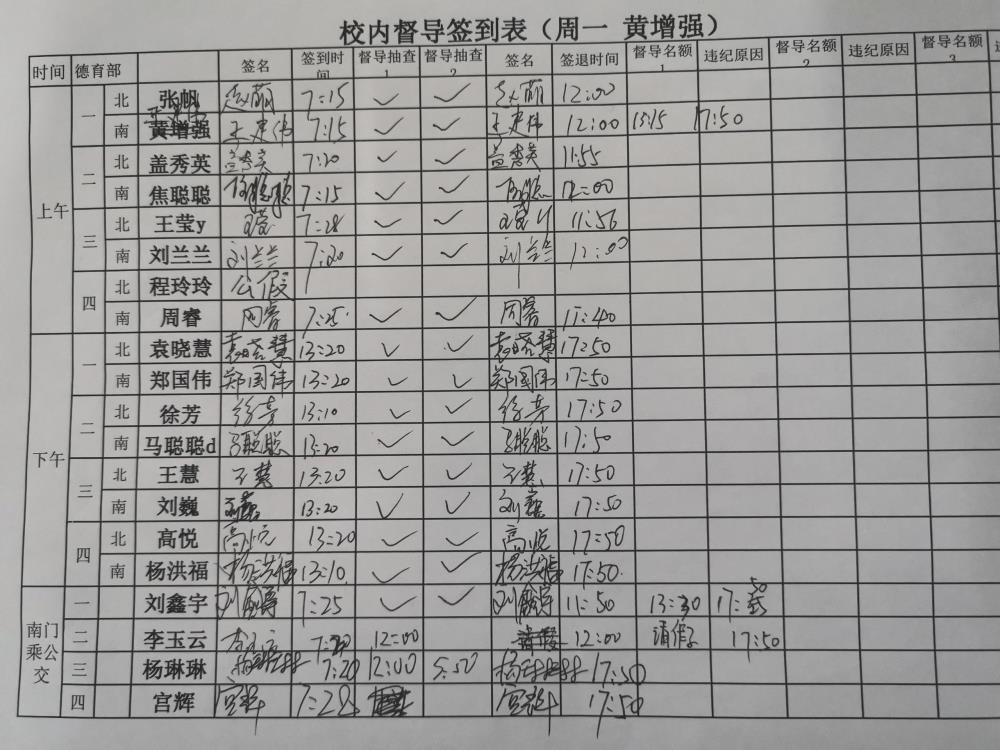 校内督导签到表（周一 黄增强）
时间 德育部 签名 签到时间 督导抽查1 督导抽查2 签名 签退时间 督导名额1 违纪原因 督导名额2 违纪原因 督导名额3
上午 一 北 张帆 赵萌 7:15 ✓ ✓ 赵萌 12:00
南 黄增强 王建伟 王建伟 7:15 ✓ ✓ 王建伟 12:00 13:15 17:50
二 北 盖秀英 盖秀英 7:20 ✓ ✓ 盖秀英 11:55
南 焦聪聪 7:15 ✓ ✓ 12:00
三 北 王莹y 王莹 7:28 ✓ ✓ 11:56
南 刘兰兰 刘兰兰 7:20 ✓ ✓ 刘兰兰 12:00
四 北 程玲玲 公假
南 周睿 周睿 7:25 ✓ ✓ 周睿 11:40
下午 一 北 袁晓慧 袁晓慧 13:20 ✓ ✓ 袁晓慧 17:50
南 郑国伟 郑国伟 13:20 ✓ ✓ 郑国伟 17:50
二 北 徐芳 徐芳 13:10 ✓ ✓ 徐芳 17:50
南 马聪聪d 马聪聪 13:20 ✓ ✓ 马聪聪 17:50
三 北 王慧 王慧 13:20 ✓ ✓ 王慧 17:50
南 刘巍 13:20 ✓ ✓ 刘巍 17:50
四 北 高悦 高悦 13:20 ✓ ✓ 高悦 17:50
南 杨洪福 杨洪福 13:10 ✓ ✓ 杨洪福 17:50
南门乘公交 一 刘鑫宇 刘鑫宇 7:25 ✓ ✓ 刘鑫宇 11:50 13:30 17:50
二 李玉云 李玉云 7:20 12:00 请假 12:00 请假 17:50
三 杨琳琳 杨琳琳 7:20 12:00 5:50 杨琳琳 17:50
四 宫辉 宫辉 7:28 宫辉 17:50